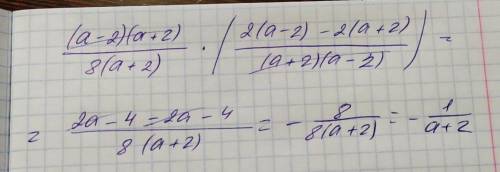 (a-2)(a+2)/8(a+2) · (2(a-2) - 2(a+2)/(a+2)(a-2)) =
= 2a-4=2a-4/8(a+2) = - 8/8(a+2) = - 1/a+2